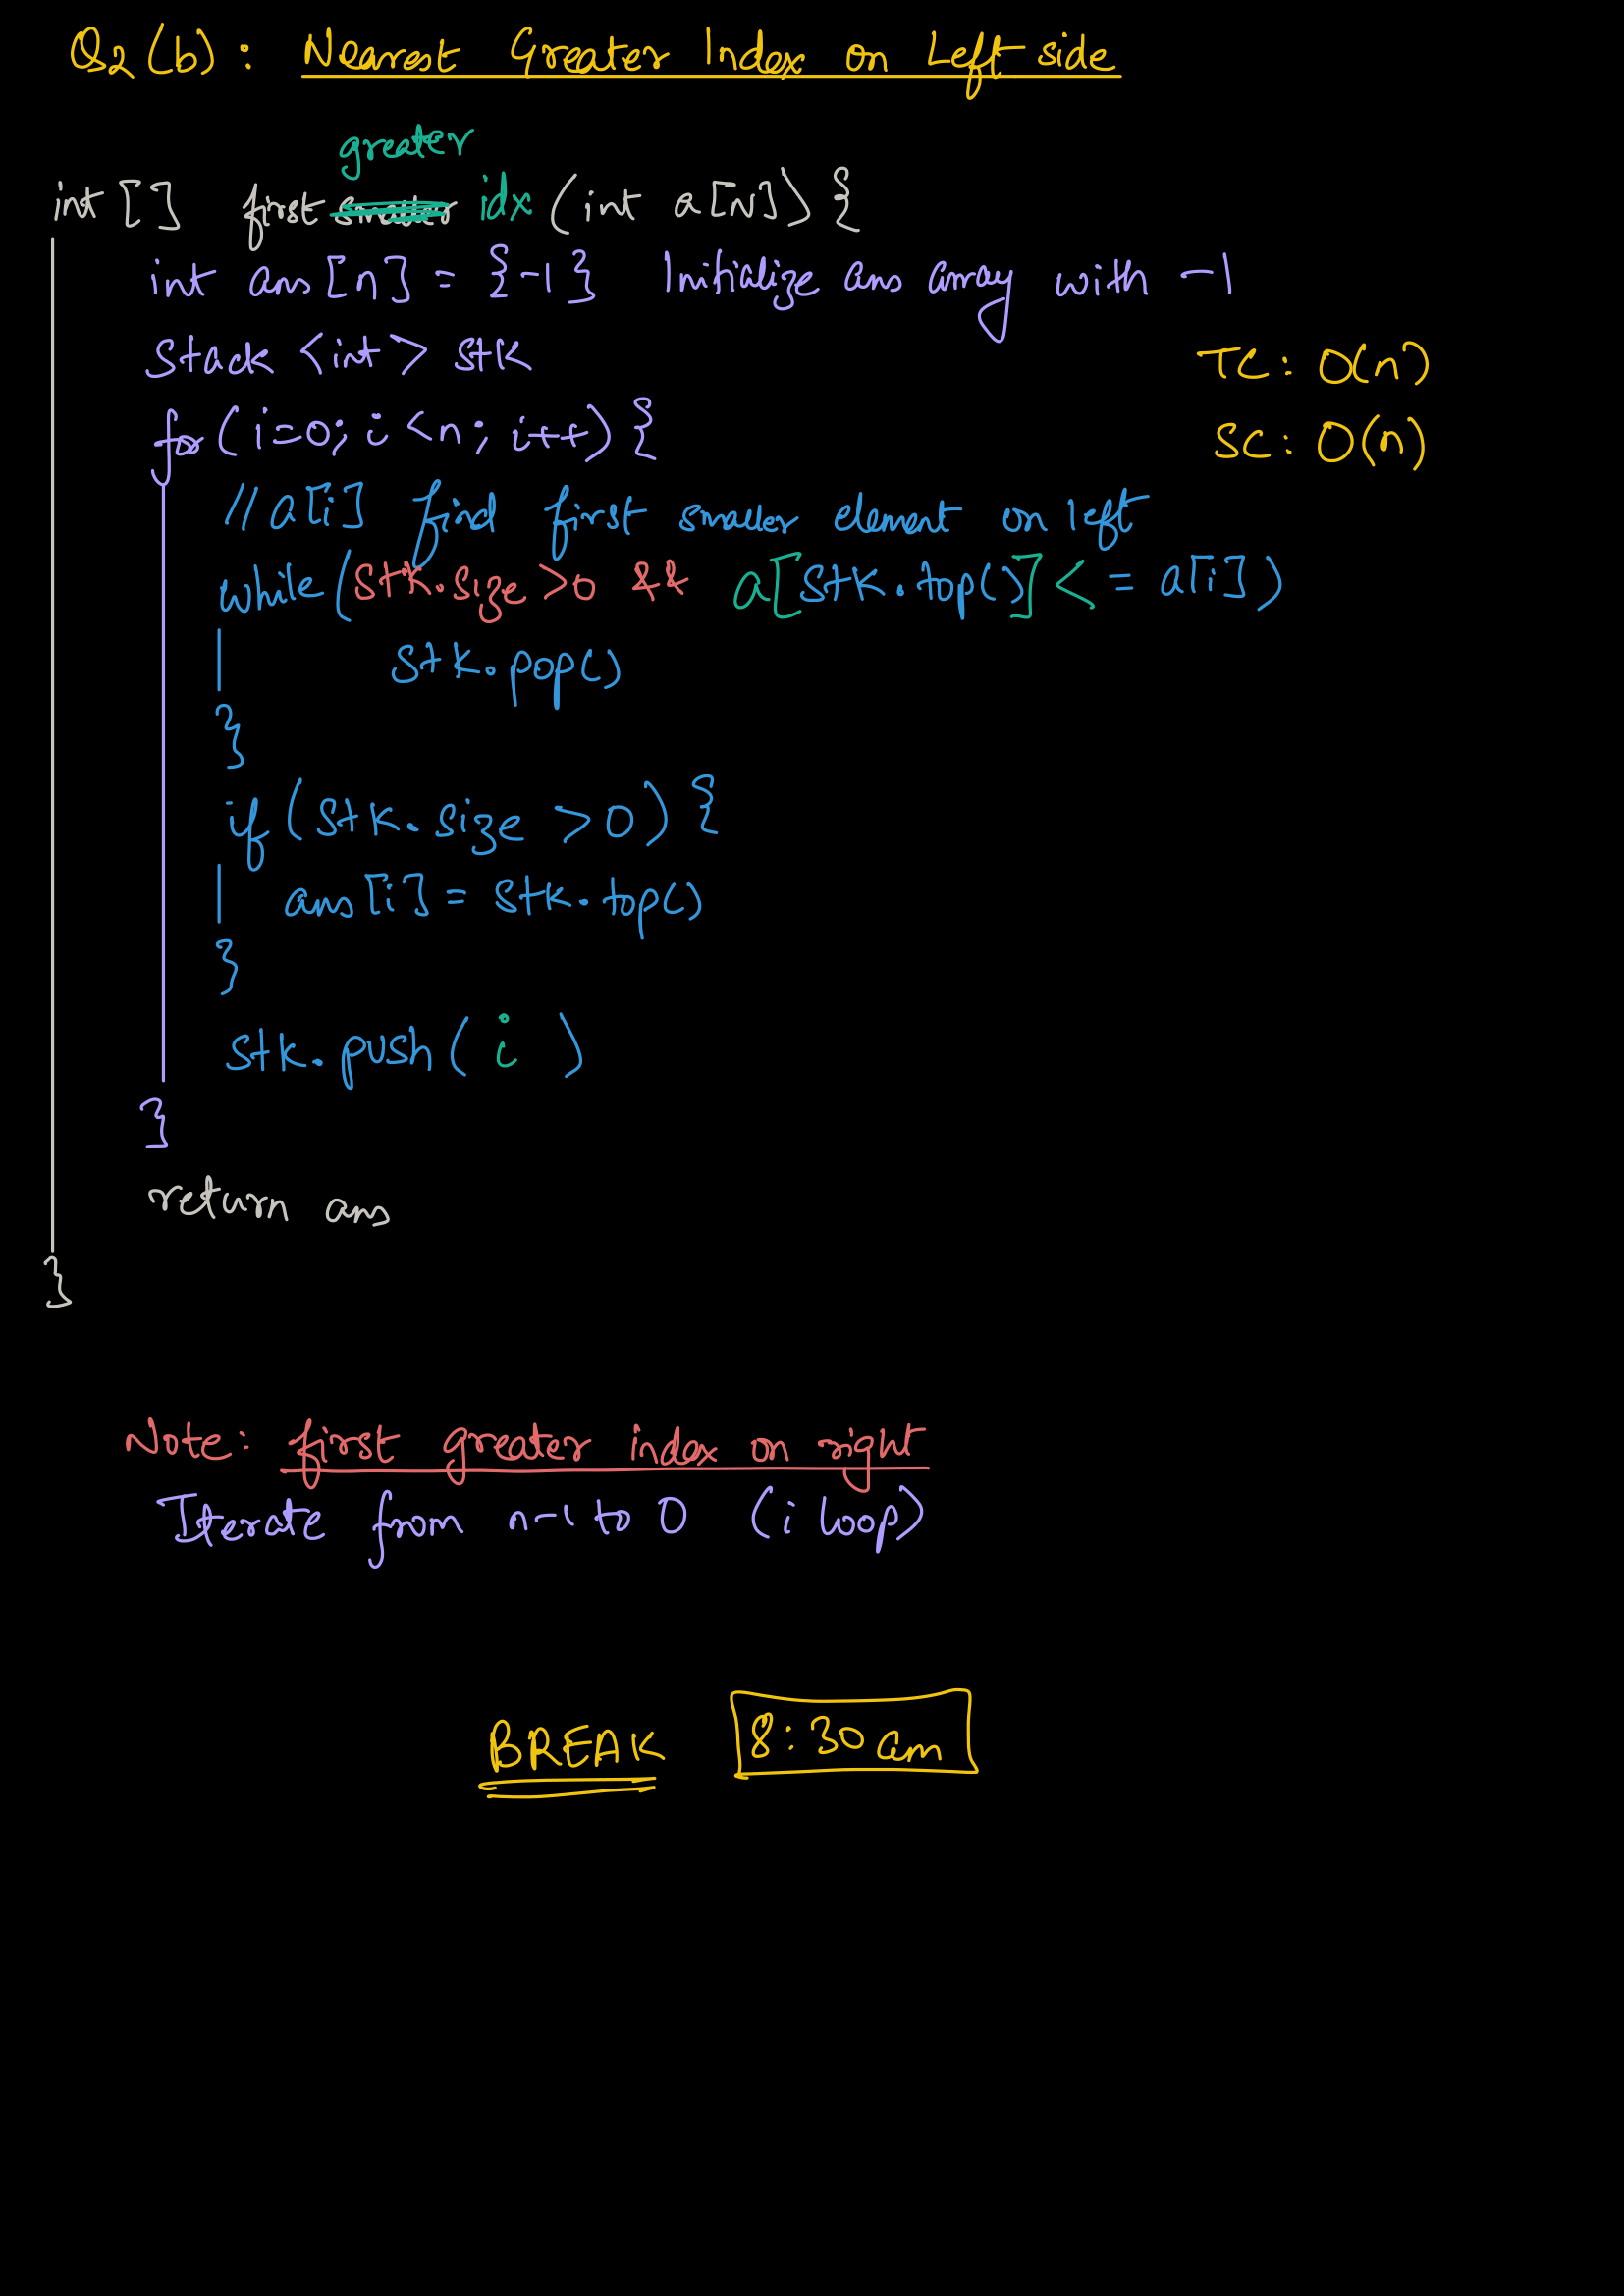 Q2 (b) : Nearest Greater Index on Left side
greater
int [] first smaller idx (int a[N]) {
int ans [n] = {-1} Initialize ans array with -1
Stack <int> stk
TC : O(n)
for (i=0; i<n; i++) {
SC : O(n)
// a[i] find first smaller element on left
while (stk.size >0 && a[stk.top()] <= a[i])
stk.pop()
}
if (stk.size >0) {
ans [i] = stk.top()
}
stk.push( i )
}
return ans
}
Note: first greater index on right
Iterate from n-1 to 0 (i loop)
BREAK 8:30 am